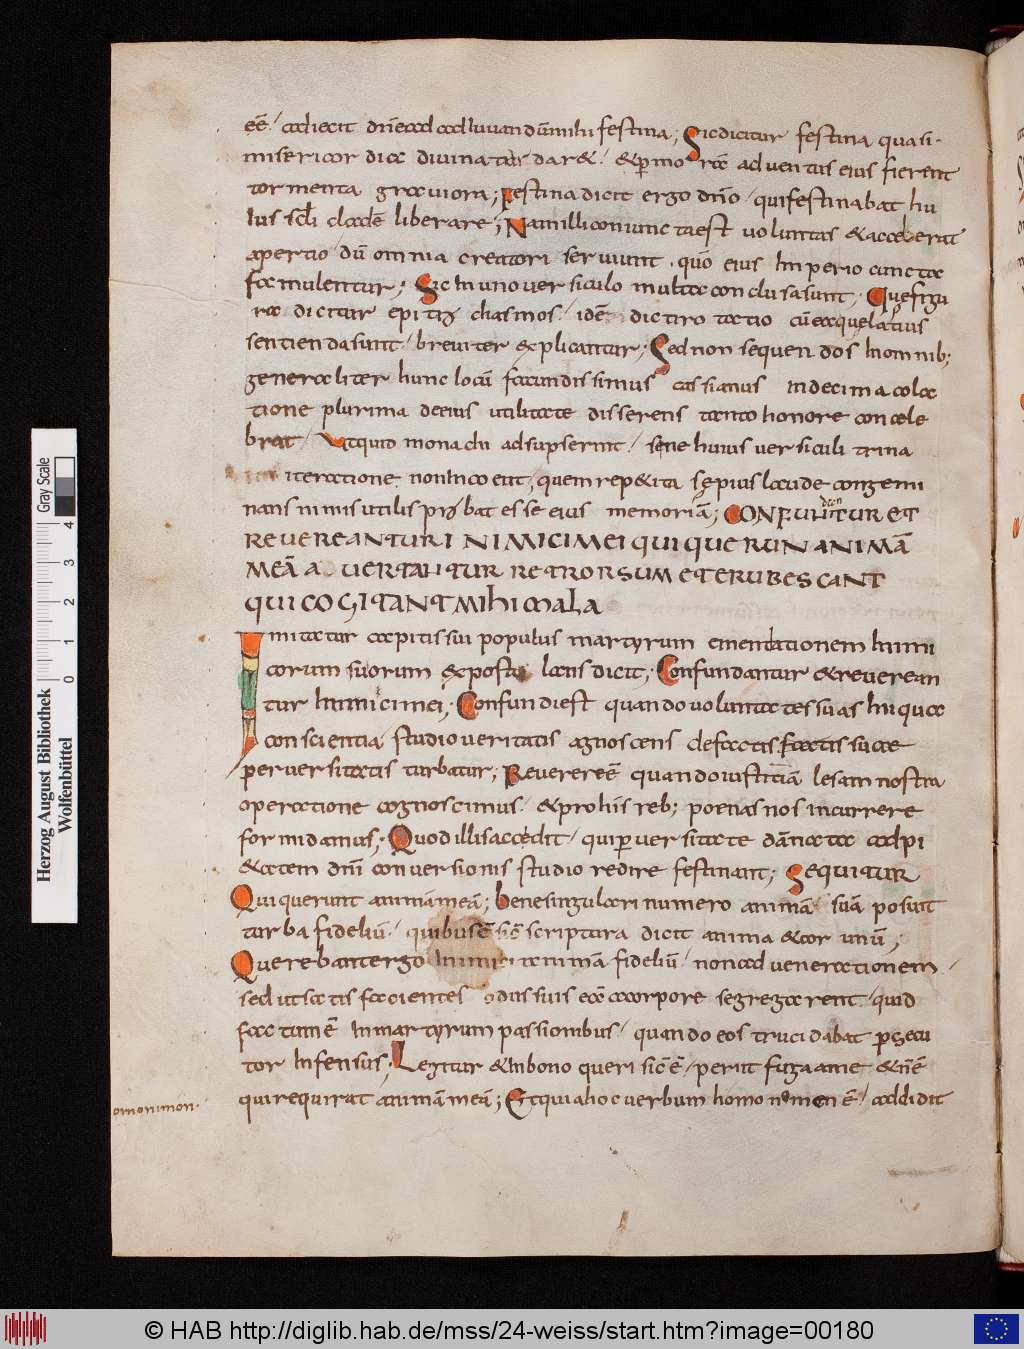 eē / adiecit dn̄e ad adiuuandū mihi festina ; Sic dicitur festina quasi
misericordia diuina tar dar& / & ꝑ moras aduentus eius fierent
tormenta grauiora ; Festina dicit ergo dn̄o / qui festinabat hu
ius scl̄i clade liberare ; Nam illi coniuncta est uoluntas & acceberat
apertio / dū omnia creatori seruiunt . quō eius Imperio cuncta
famulentur ; Sic In uno uersiculo multa conclusa sunt ; Que figu
ra dicitur epitrochasmos / idē dicti rotatio cū ea que latius
sentienda sunt / breuiter explicantur ; Sed non sequendos In omnib;
generaliter hunc locū facundissimus cassianus in decima colla
tione plurima de eius utilitate disserens tanto honore concele
brat / Ut quito monachi adsupserint / sine huius uersiculi trina
iteratione non Incoent / quem rep&ita sępius laude congemi
nans nimis utilis prọbat esse eius memoriā ; CONFUNDANTUR ET
REUEREANTUR INIMICI MEI QUI QUERUNT ANIMĀ
MEĀ AUERTANTUR RETRORSUM ET ERUBESCANT
QUI COGITANT MIHI MALA
Imitatur capitis sui populus martyrum ementationem Inimi
corum suorum exposta lans dicit ; Confundantur & reuerean
tur Inimici mei ; Confundi est quando uoluntates suas Iniquae
conscientia studio ueritatis agnoscens de factis factis suae
peruersitatis turbatur ; Reuereri ē quando iustitiā lesam nostra
operatione cognoscimus / & pro his reb; poenas nos incurrere
formidamus ; Quod illis accedit / qui ꝑuersitate dānata adpi
&atem dn̄i conuersionis studio redire festinant ; SEQUITUR
Qui querunt animā meā ; Bene singulari numero animā suā posuit
turba fideliū / quibus ē sic scriptura dicit anima & cor unū ;
Querebant ergo Inimici animā fideliū / non ad uenerationem
sed ut satis facientes odiis suis eā a corpore segregarent / quid
factum ē In martyrum passionibus / quando eos trucidabat ꝑsecu
tor Infensus ; Legitur & In bono queri sic ē / periit fuga a me & n̄ ē
qui requirat animā meā ; Et quia hoc uerbum homonomon ē / addidit
omonimon .
Herzog August Bibliothek
Wolfenbüttel
0 1 2 3 4 Gray Scale
© HAB http://diglib.hab.de/mss/24-weiss/start.htm?image=00180